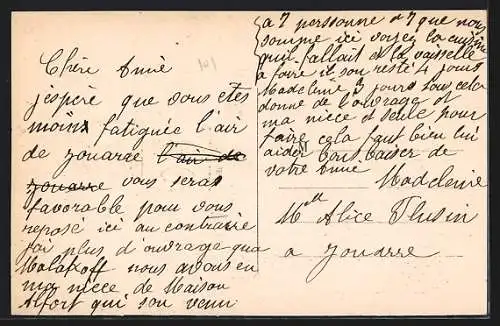 Chère Amie
j'espère que vous etes
moins fatiguée l'air
de jouarre l'air de
jouarre vous seras
favorable pour vous
reposé ici au contraire
j'ai plus d'ouvrage qua
Malakoff nous avons eu
ma niece de Maison
Alfort qui son venu
a 7 personne et 7 que nous
somme ici voyez la cuisine
qui fallait et la vaisselle
a faire il son resté 4 jours
Madeleine 3 jours tous cela
donne de l'ouvrage et
ma niece et seule pour
faire cela faut bien lui
aider bons baiser de
votre Amie
Madeleine
Mlle Alice Plusin
a Jouarre